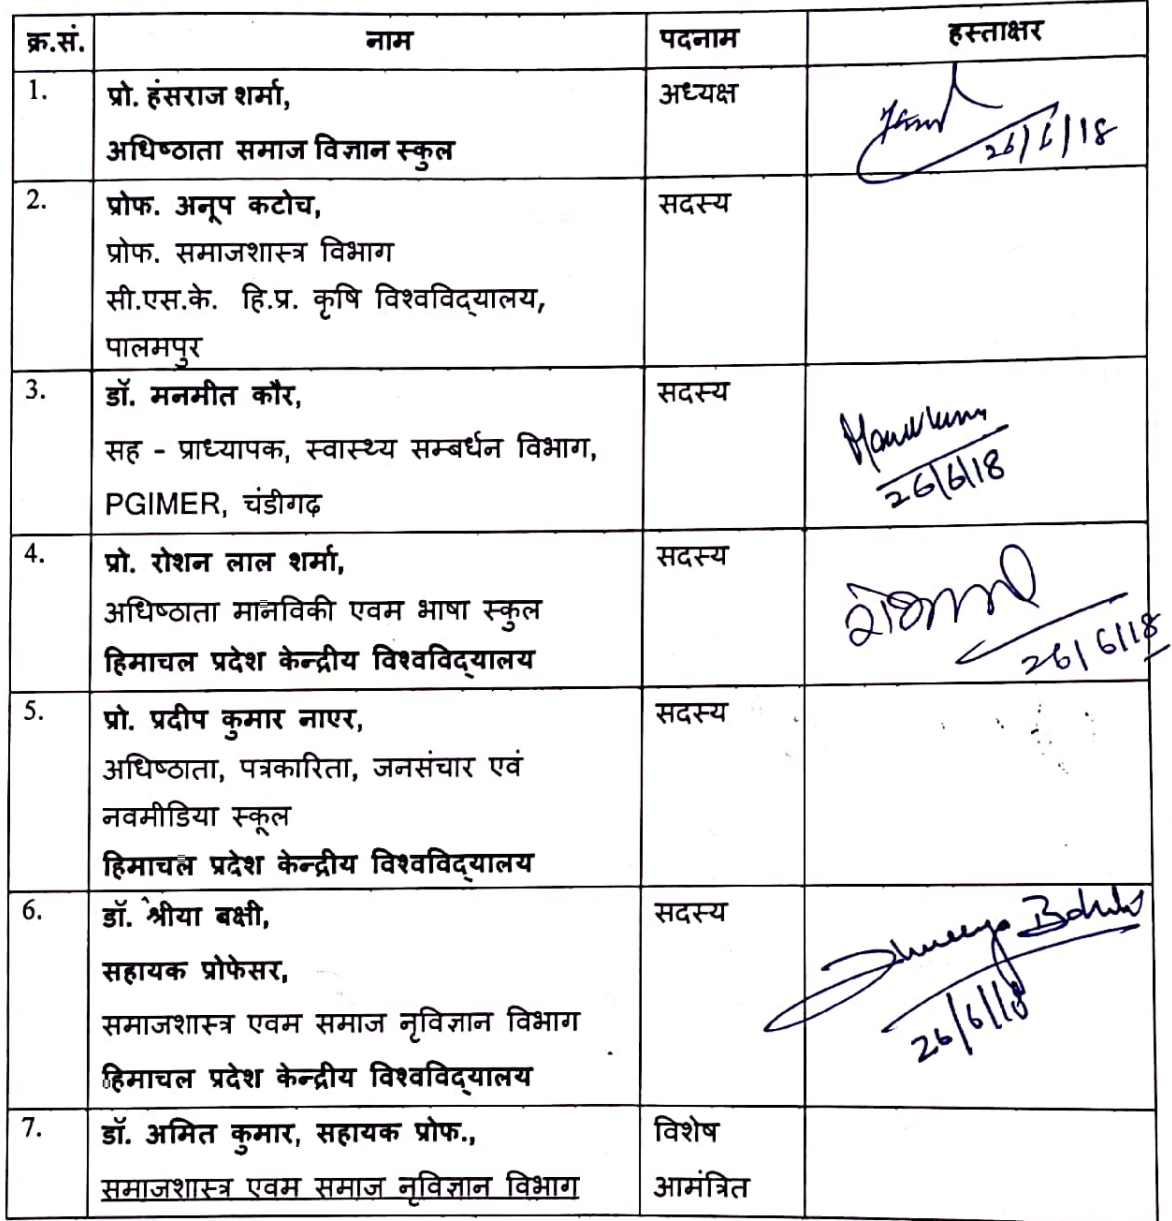 क्र.सं. नाम पदनाम हस्ताक्षर
1. प्रो. हंसराज शर्मा, अध्यक्ष
अधिष्ठाता समाज विज्ञान स्कुल 26/6/18
2. प्रोफ. अनूप कटोच, सदस्य
प्रोफ. समाजशास्त्र विभाग
सी.एस.के. हि.प्र. कृषि विश्वविद्यालय,
पालमपुर
3. डॉ. मनमीत कौर, सदस्य
सह - प्राध्यापक, स्वास्थ्य सम्बर्धन विभाग,
PGIMER, चंडीगढ़ 26/6/18
4. प्रो. रोशन लाल शर्मा, सदस्य
अधिष्ठाता मानविकी एवम भाषा स्कुल
हिमाचल प्रदेश केन्द्रीय विश्वविद्यालय 26/6/18
5. प्रो. प्रदीप कुमार नाएर, सदस्य
अधिष्ठाता, पत्रकारिता, जनसंचार एवं
नवमीडिया स्कूल
हिमाचल प्रदेश केन्द्रीय विश्वविद्यालय
6. डॉ. श्रीया बक्षी, सदस्य
सहायक प्रोफेसर,
समाजशास्त्र एवम समाज नृविज्ञान विभाग 26/6/18
हिमाचल प्रदेश केन्द्रीय विश्वविद्यालय
7. डॉ. अमित कुमार, सहायक प्रोफ., विशेष
समाजशास्त्र एवम समाज नृविज्ञान विभाग आमंत्रित